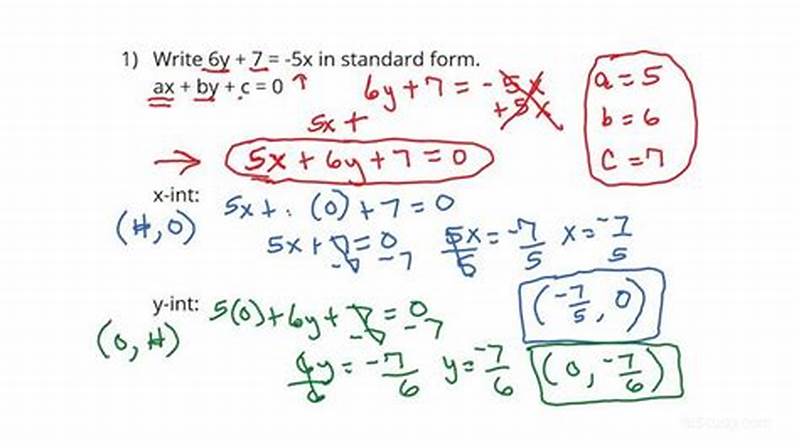 1) Write 6y + 7 = -5x in standard form.
ax + by + c = 0 ↑ 6y + 7 = -5x
5x + +5x
→ 5x + 6y + 7 = 0
a = 5
b = 6
c = 7
x-int: 5x + . (0) + 7 = 0
(#, 0) 5x + 7 = 0 5x = -7 x = -7
-7 -7 5 5 5
(-7/5, 0)
y-int: 5(0) + 6y + 7 = 0
(0, #) -7 -7
6y = -7 y = -7 (0, -7/6)
6 6 6